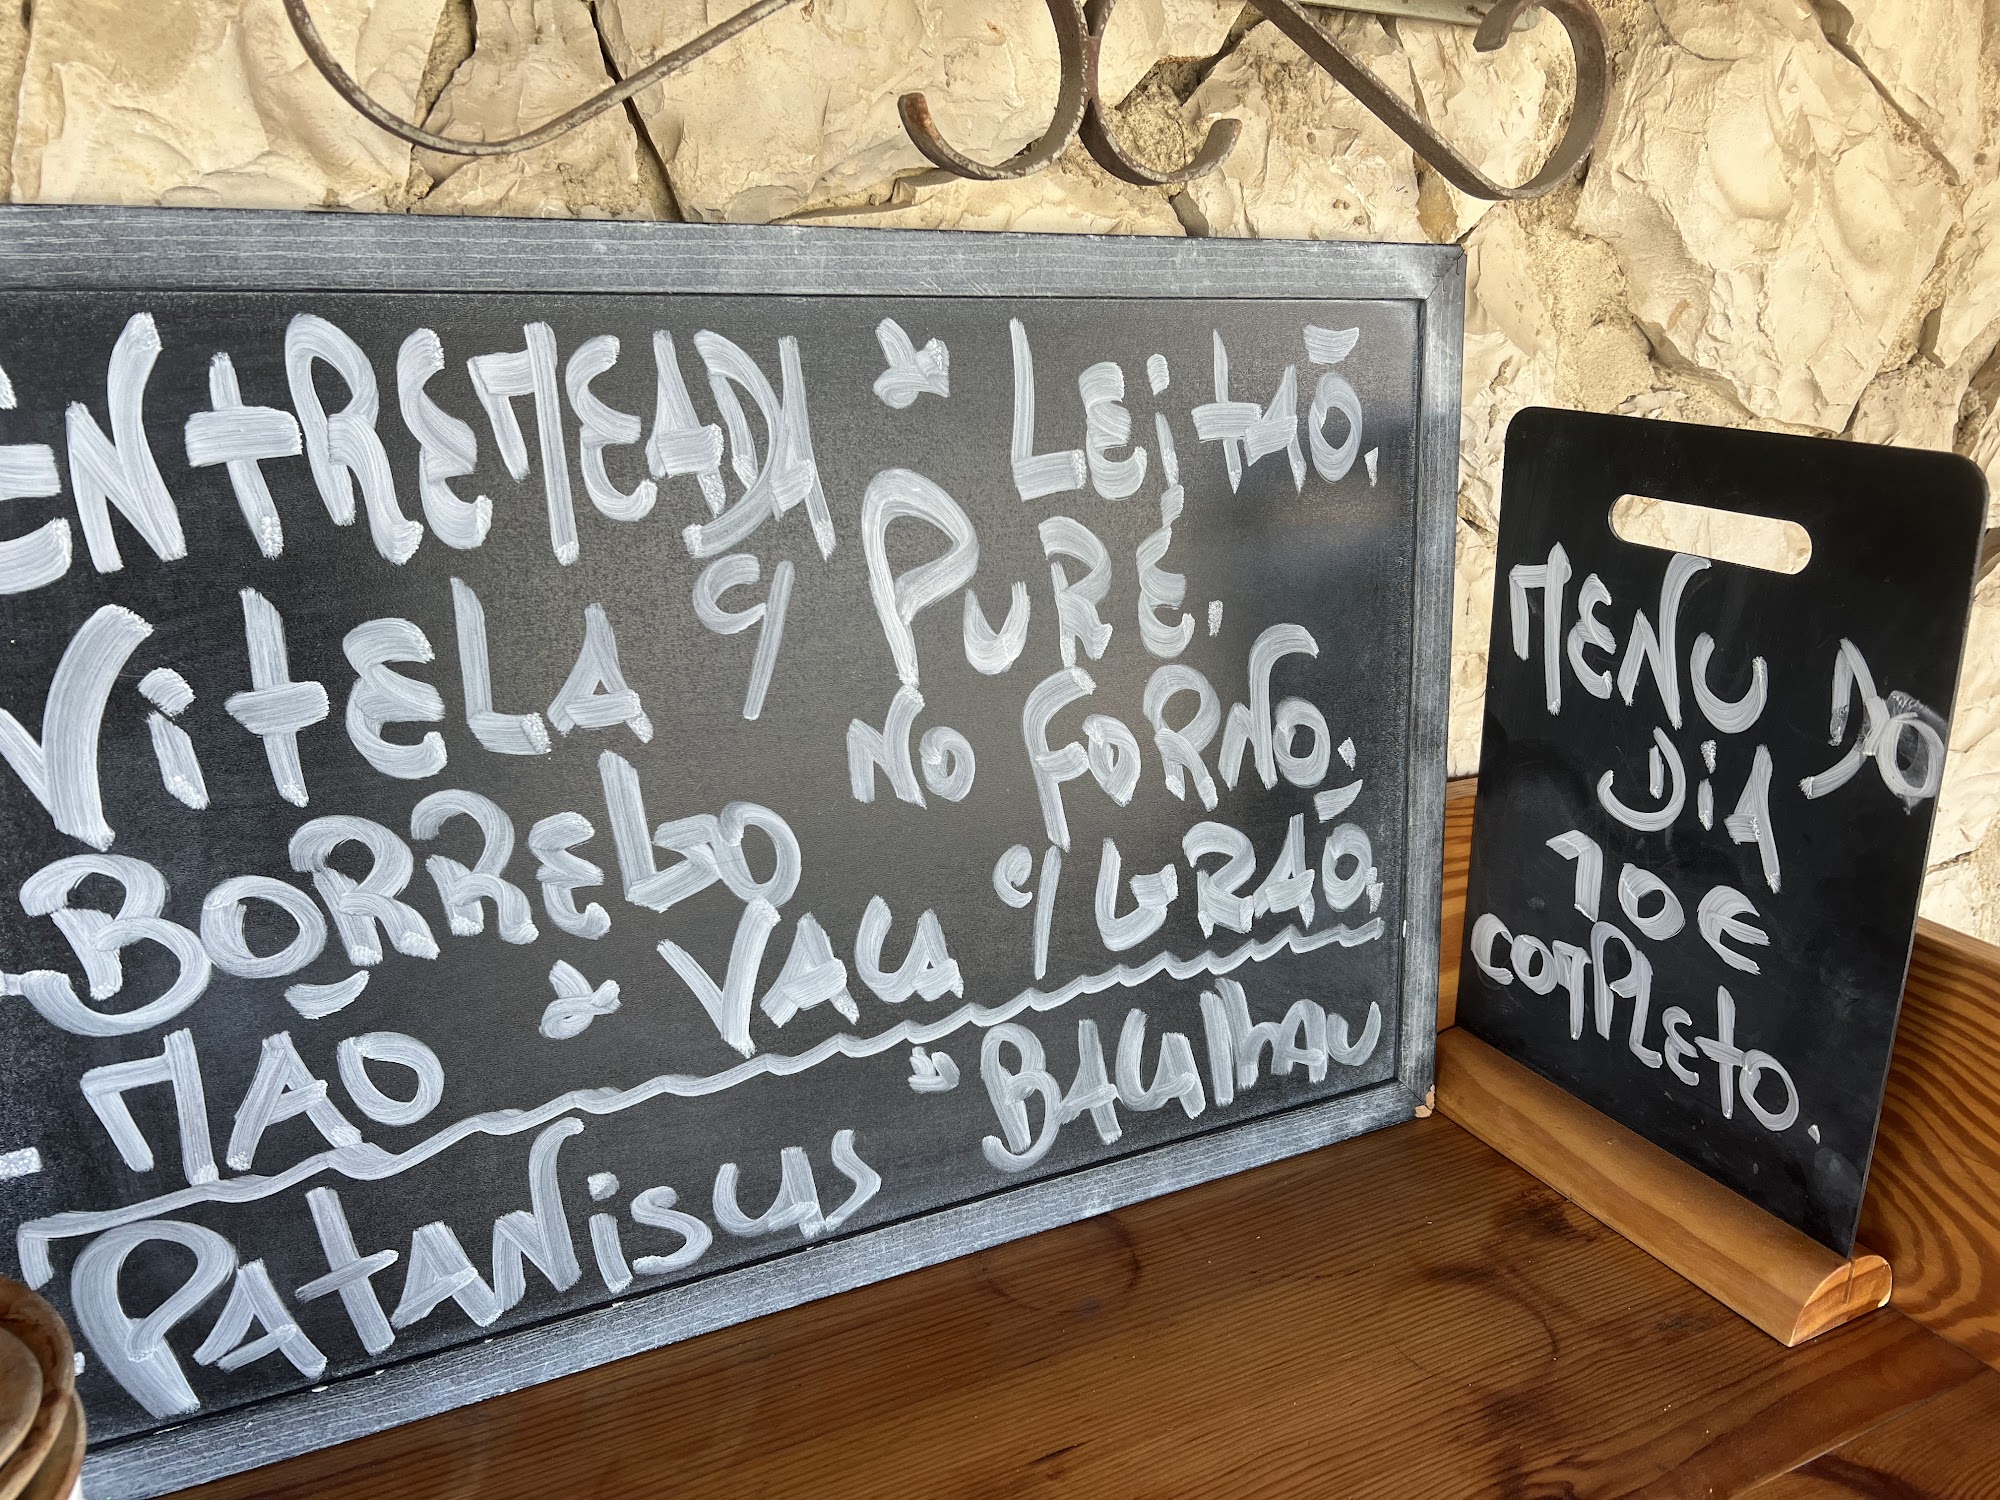 ENTREMEADA * LEITÃO.
VITELA C/ PURÉ.
BORREGO NO FORNO.
MÃO * VACA C/ GRÃO.
PATANISCAS * BACALHAU
MENU DO
DIA
10€
COMPLETO.